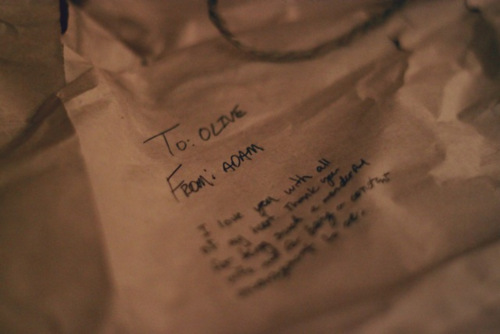 To: OLIVE
FROM: ADAM
I love you with all
of my heart thank you
for being such a wonderful
wife and for being a constant
encouragement to me.